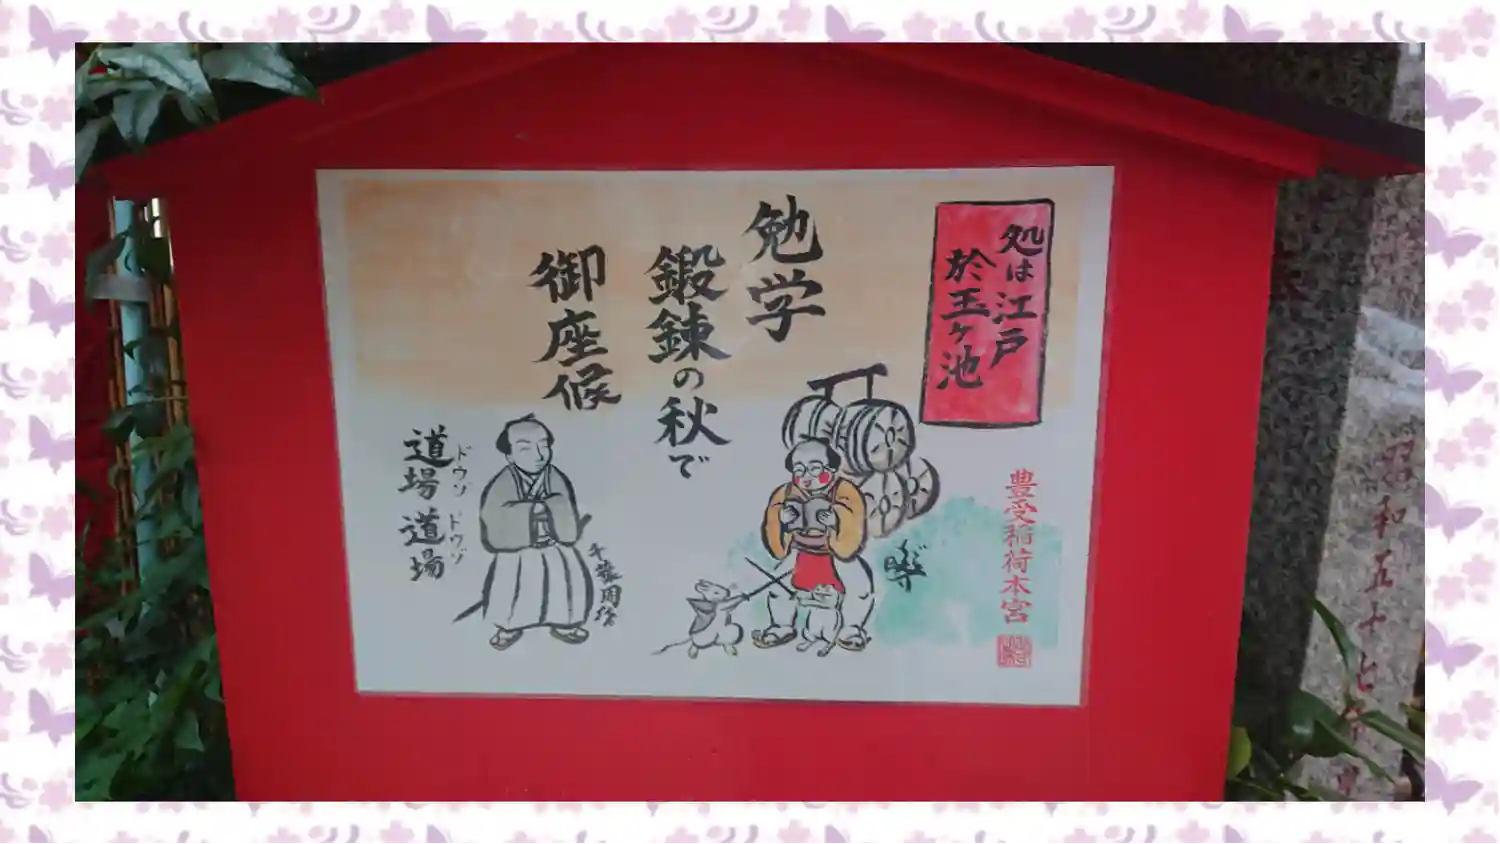 処は江戸
於玉ヶ池
勉学
鍛錬の秋で
御座候
道場 道場
ドウゾ ドウゾ
千葉周作
豊受稲荷本宮
昭和五十七年